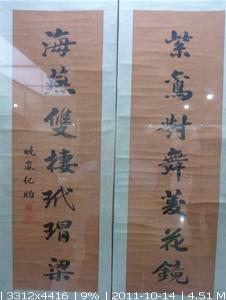 紫鸞對舞菱花鏡
海燕雙棲玳瑁梁
曉嵐紀昀
| 3312x4416 | 9% | 2011-10-14 | 4.51 M